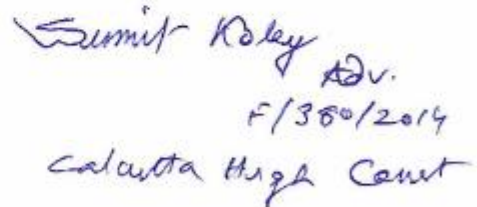 Sumit Koley
Adv.
F/380/2014
Calcutta High Court